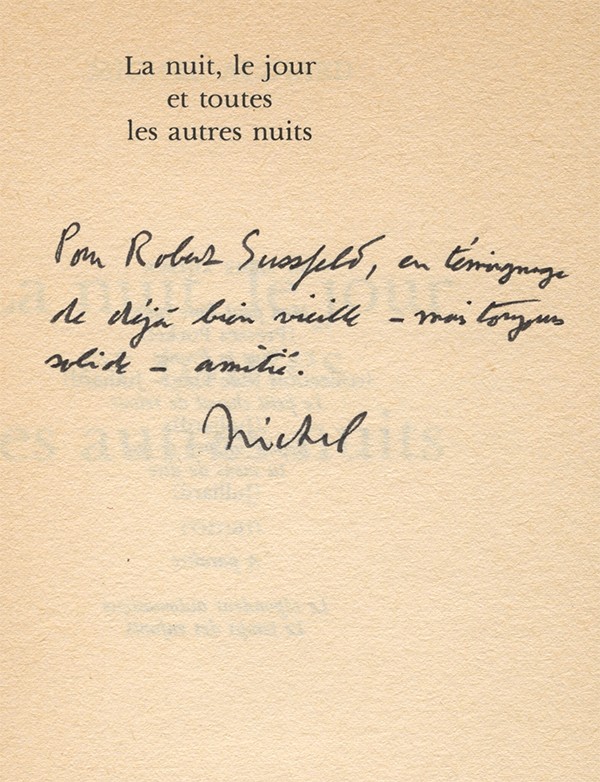 La nuit, le jour
et toutes
les autres nuits
Pour Robert Sussfeld, en témoignage
de déjà bien vieille – mais toujours
solide – amitié.
Michel